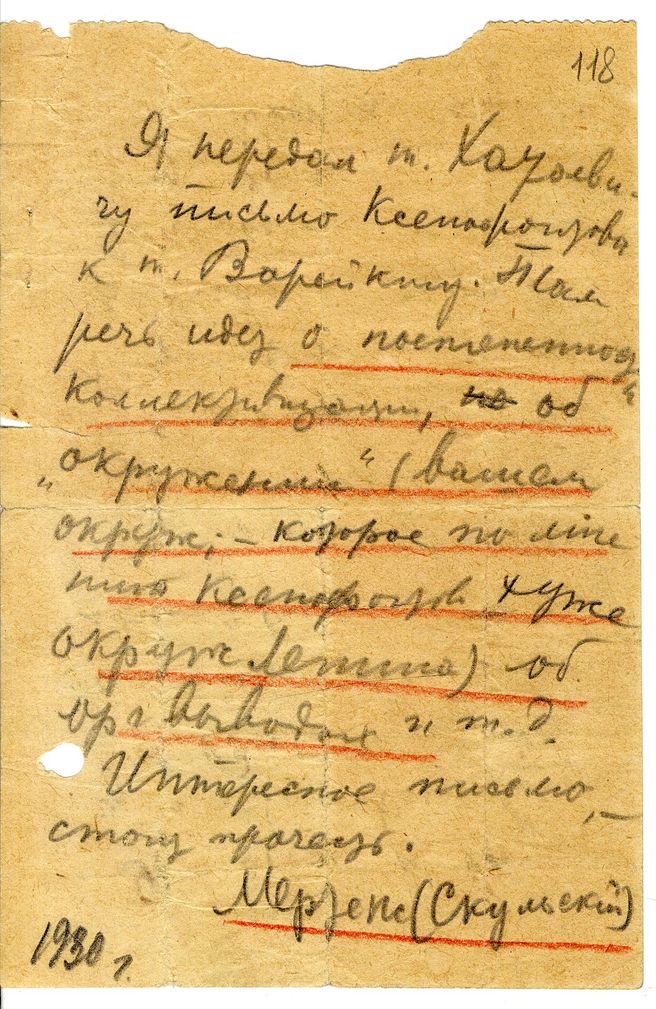 118
Я передал т. Хатаеви-
чу письмо Ксенофонтова
к т. Варейкису. Там
речь идет о постепенной
коллективизации, не об
„окружении“ (вашем
окруж, – которое по мне
нию Ксенофонтов хуже
окруж Ленина) об
орг выводах и т.д.
Интересное письмо, –
стоит прочесть.
(Скульский)
1930 г.